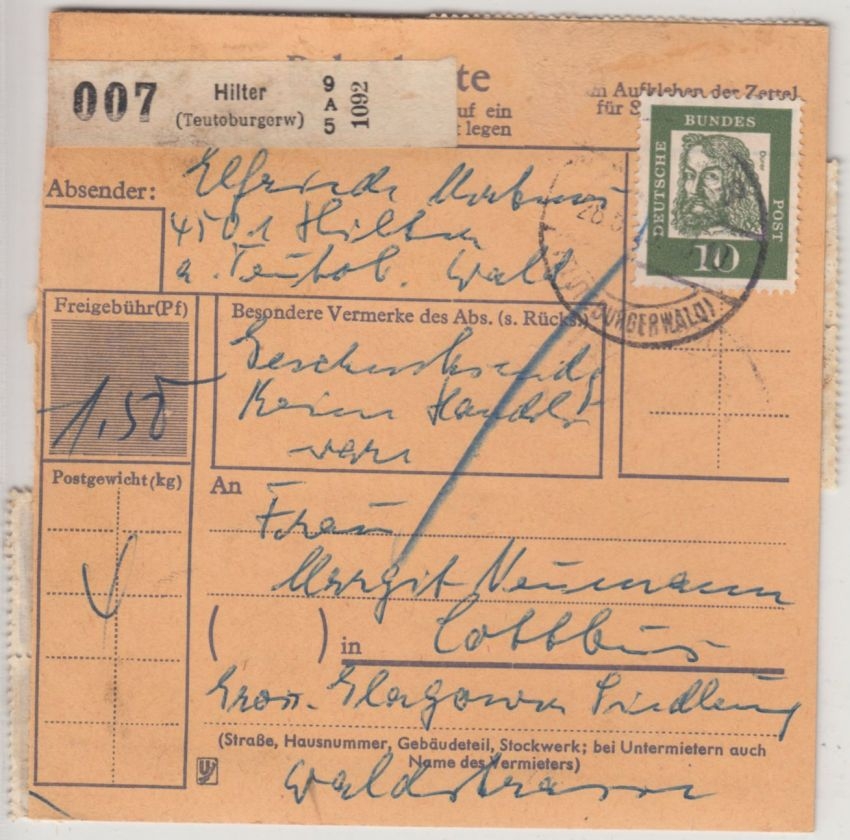 007 Hilter (Teutoburgerw) 9 A 5 1092
te
m Aufkleben der Zettel
für S
uf ein
t legen
DEUTSCHE BUNDES POST
Dürer
10
28.
BURGERWALD)
Absender: Elfriede
4501 Hilter
a. Teutob. Wald
Freigebühr(Pf)
1,50
Besondere Vermerke des Abs. (s. Rücks.)
Geschenksendg
Keine Handels
ware
Postgewicht(kg)
An
Frau
Margit Neumann
( ) in Cottbus
Gross. Glagower Siedlung
(Straße, Hausnummer, Gebäudeteil, Stockwerk; bei Untermietern auch
Name des Vermieters)
Waldstrasse